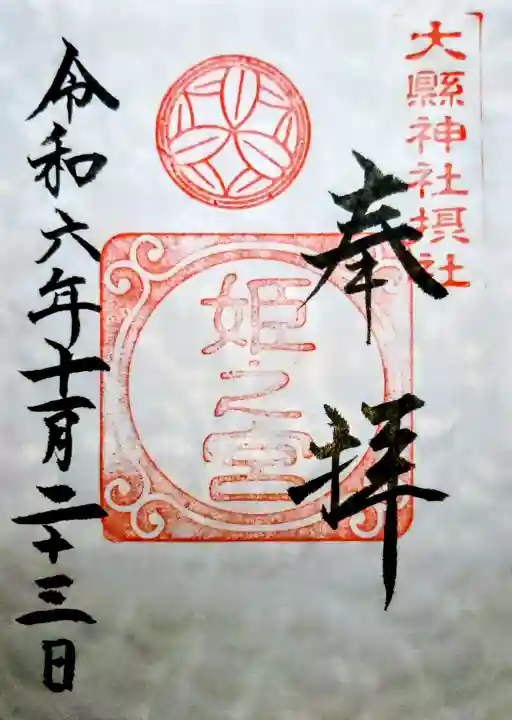 大縣神社摂社
奉拝
姫之宮
令和六年十一月二十三日